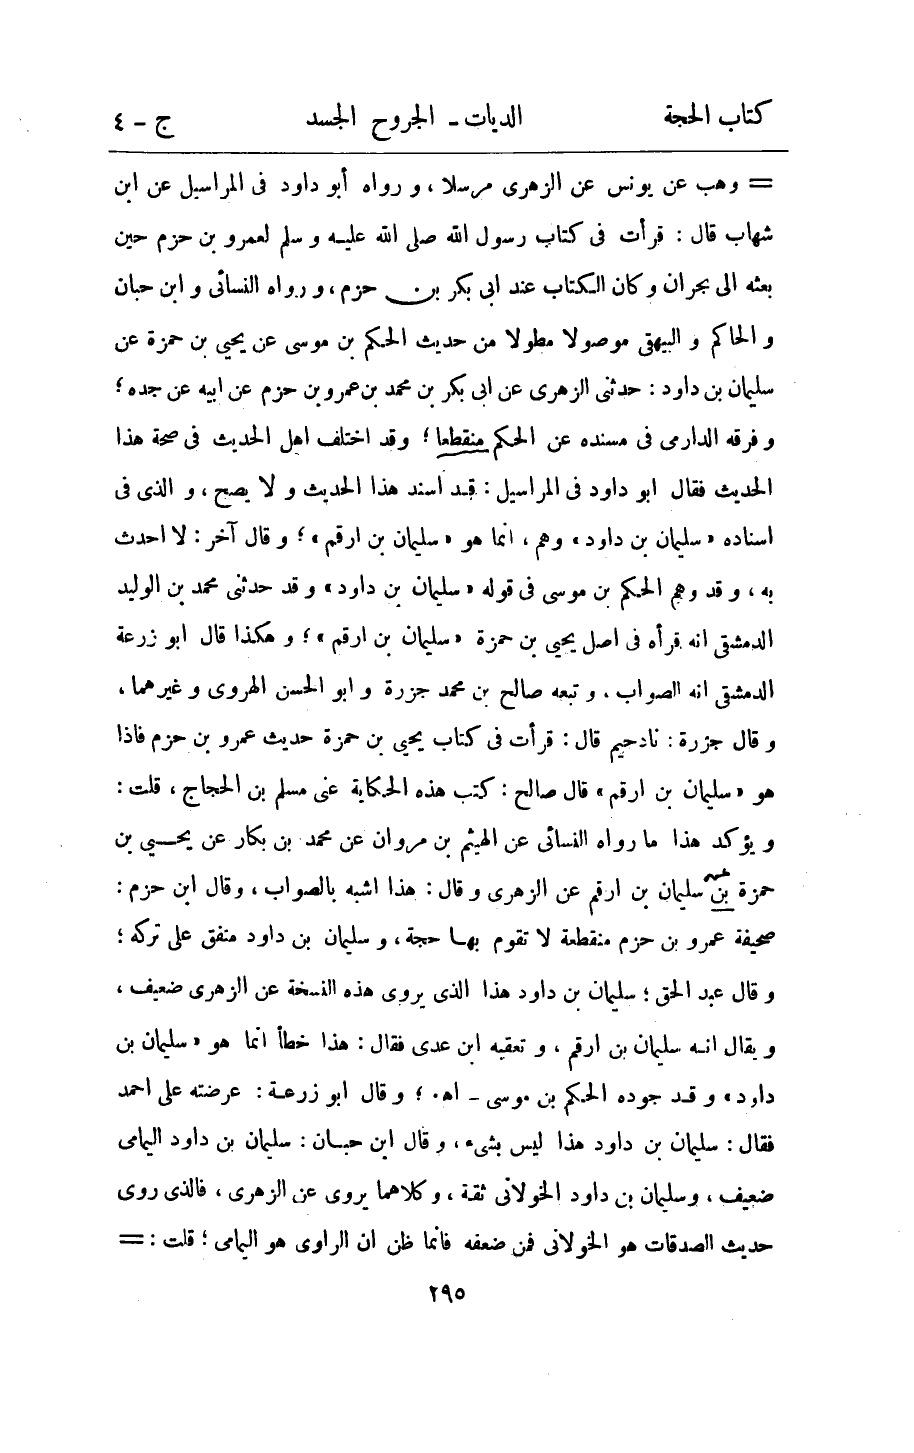 كتاب الحجة الديات - الجروح الجسد ج - ٤
= وهب عن يونس عن الزهرى مرسلا ، و رواه أبو داود فى المراسيل عن ابن
شهاب قال : قرأت فى كتاب رسول الله صلى الله عليه و سلم لعمرو بن حزم حين
بعثه الى نجران و كان الكتاب عند ابى بكر بن حزم ، و رواه النسائى و ابن حبان
و الحاكم و البيهقى موصولا مطولا من حديث الحكم بن موسى عن يحيى بن حمزة عن
سليمان بن داود : حدثنى الزهرى عن ابى بكر بن محمد بن عمرو بن حزم عن ابيه عن جده ؛
و فرقه الدارمى فى مسنده عن الحكم منقطعا ؛ وقد اختلف اهل الحديث فى صحة هذا
الحديث فقال ابو داود فى المراسيل : قد اسند هذا الحديث و لا يصح ، و الذى فى
اسناده « سليمان بن داود » وهم ، انما هو « سليمان بن ارقم » ؛ و قال آخر : لا احدث
به ، و قد وهم الحكم بن موسى فى قوله « سليمان بن داود » و قد حدثنى محمد بن الوليد
الدمشقى انه قرأه فى اصل يحيى بن حمزة « سليمان بن ارقم » ؛ و هكذا قال ابو زرعة
الدمشقى انه الصواب ، و تبعه صالح بن محمد جزرة و ابو الحسن الهروى و غيرهما ،
و قال جزرة : نا دحيم قال : قرأت فى كتاب يحيى بن حمزة حديث عمرو بن حزم فاذا
هو « سليمان بن ارقم » قال صالح : كتب هذه الحكاية عنى مسلم بن الحجاج ، قلت :
و يؤكد هذا ما رواه النسائى عن الهيثم بن مروان عن محمد بن بكار عن يحيى بن
حمزة بن سليمان بن ارقم عن الزهرى و قال : هذا اشبه بالصواب ، وقال ابن حزم :
صحيفة عمرو بن حزم منقطعة لا تقوم بها حجة ، و سليمان بن داود متفق على تركه ؛
و قال عبد الحق ؛ سليمان بن داود هذا الذى يروى هذه النسخة عن الزهرى ضعيف ،
و يقال انه سليمان بن ارقم ، و تعقبه ابن عدى فقال : هذا خطأ انما هو « سليمان بن
داود » و قد جوده الحكم بن موسى - اه . ؛ و قال ابو زرعة : عرضته على احمد
فقال : سليمان بن داود هذا ليس بشىء ، و قال ابن حبان : سليمان بن داود اليمامى
ضعيف ، وسليمان بن داود الخولانى ثقة ، و كلاهما يروى عن الزهرى ، فالذى روى
حديث الصدقات هو الخولانى فمن ضعفه فانما ظن ان الراوى هو اليمامى ؛ قلت : =
٢٩٥